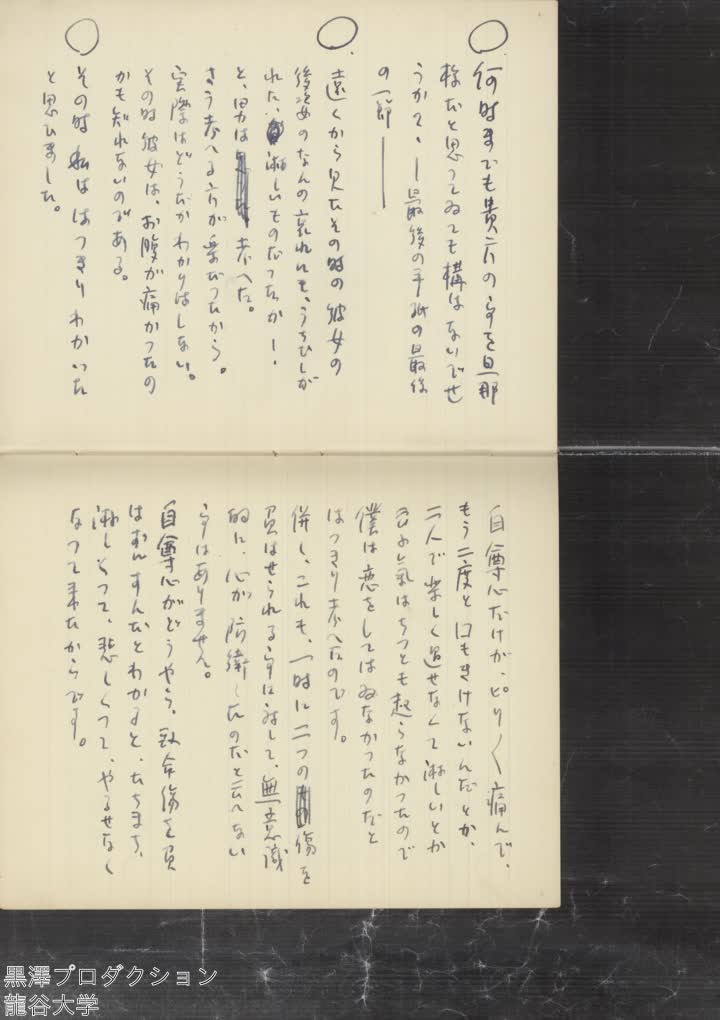 ○
何時までも貴方の事を旦那
様だと思つてゐても構はないでせ
うか？、―最後の手紙の最後
の一節――
○
遠くから見たその時の彼女の
後姿のなんの哀れにも、うちひしが
れた、淋しいものだつたか―、
と、男は考へた。
さう考へる方が楽だつたから。
実際はどうだかわかりはしない。
その時彼女は、お腹が痛かつたの
かも知れないのである。
○
その時私ははつきりわかつた
と思ひました。
自尊心だけが、ピリ〱痛んで、
もう二度と口もきけないんだとか、
二人で楽しく過せなくて淋しいとか
云ふ気はちつとも起らなかつたので
僕は恋をしてはゐなかつたのだと
はつきり考へたのです。
併し、これも、一時に二つの傷を
負はせられる事に対して、無意識
的に、心が防衛したのだと云へない
事はありません。
自尊心がどうやら、致命傷を負
はずにすんだとわかると、たちまち、
淋しくつて、悲しくつて、やるせなく
なつて来たからです。
黒澤プロダクション
龍谷大学